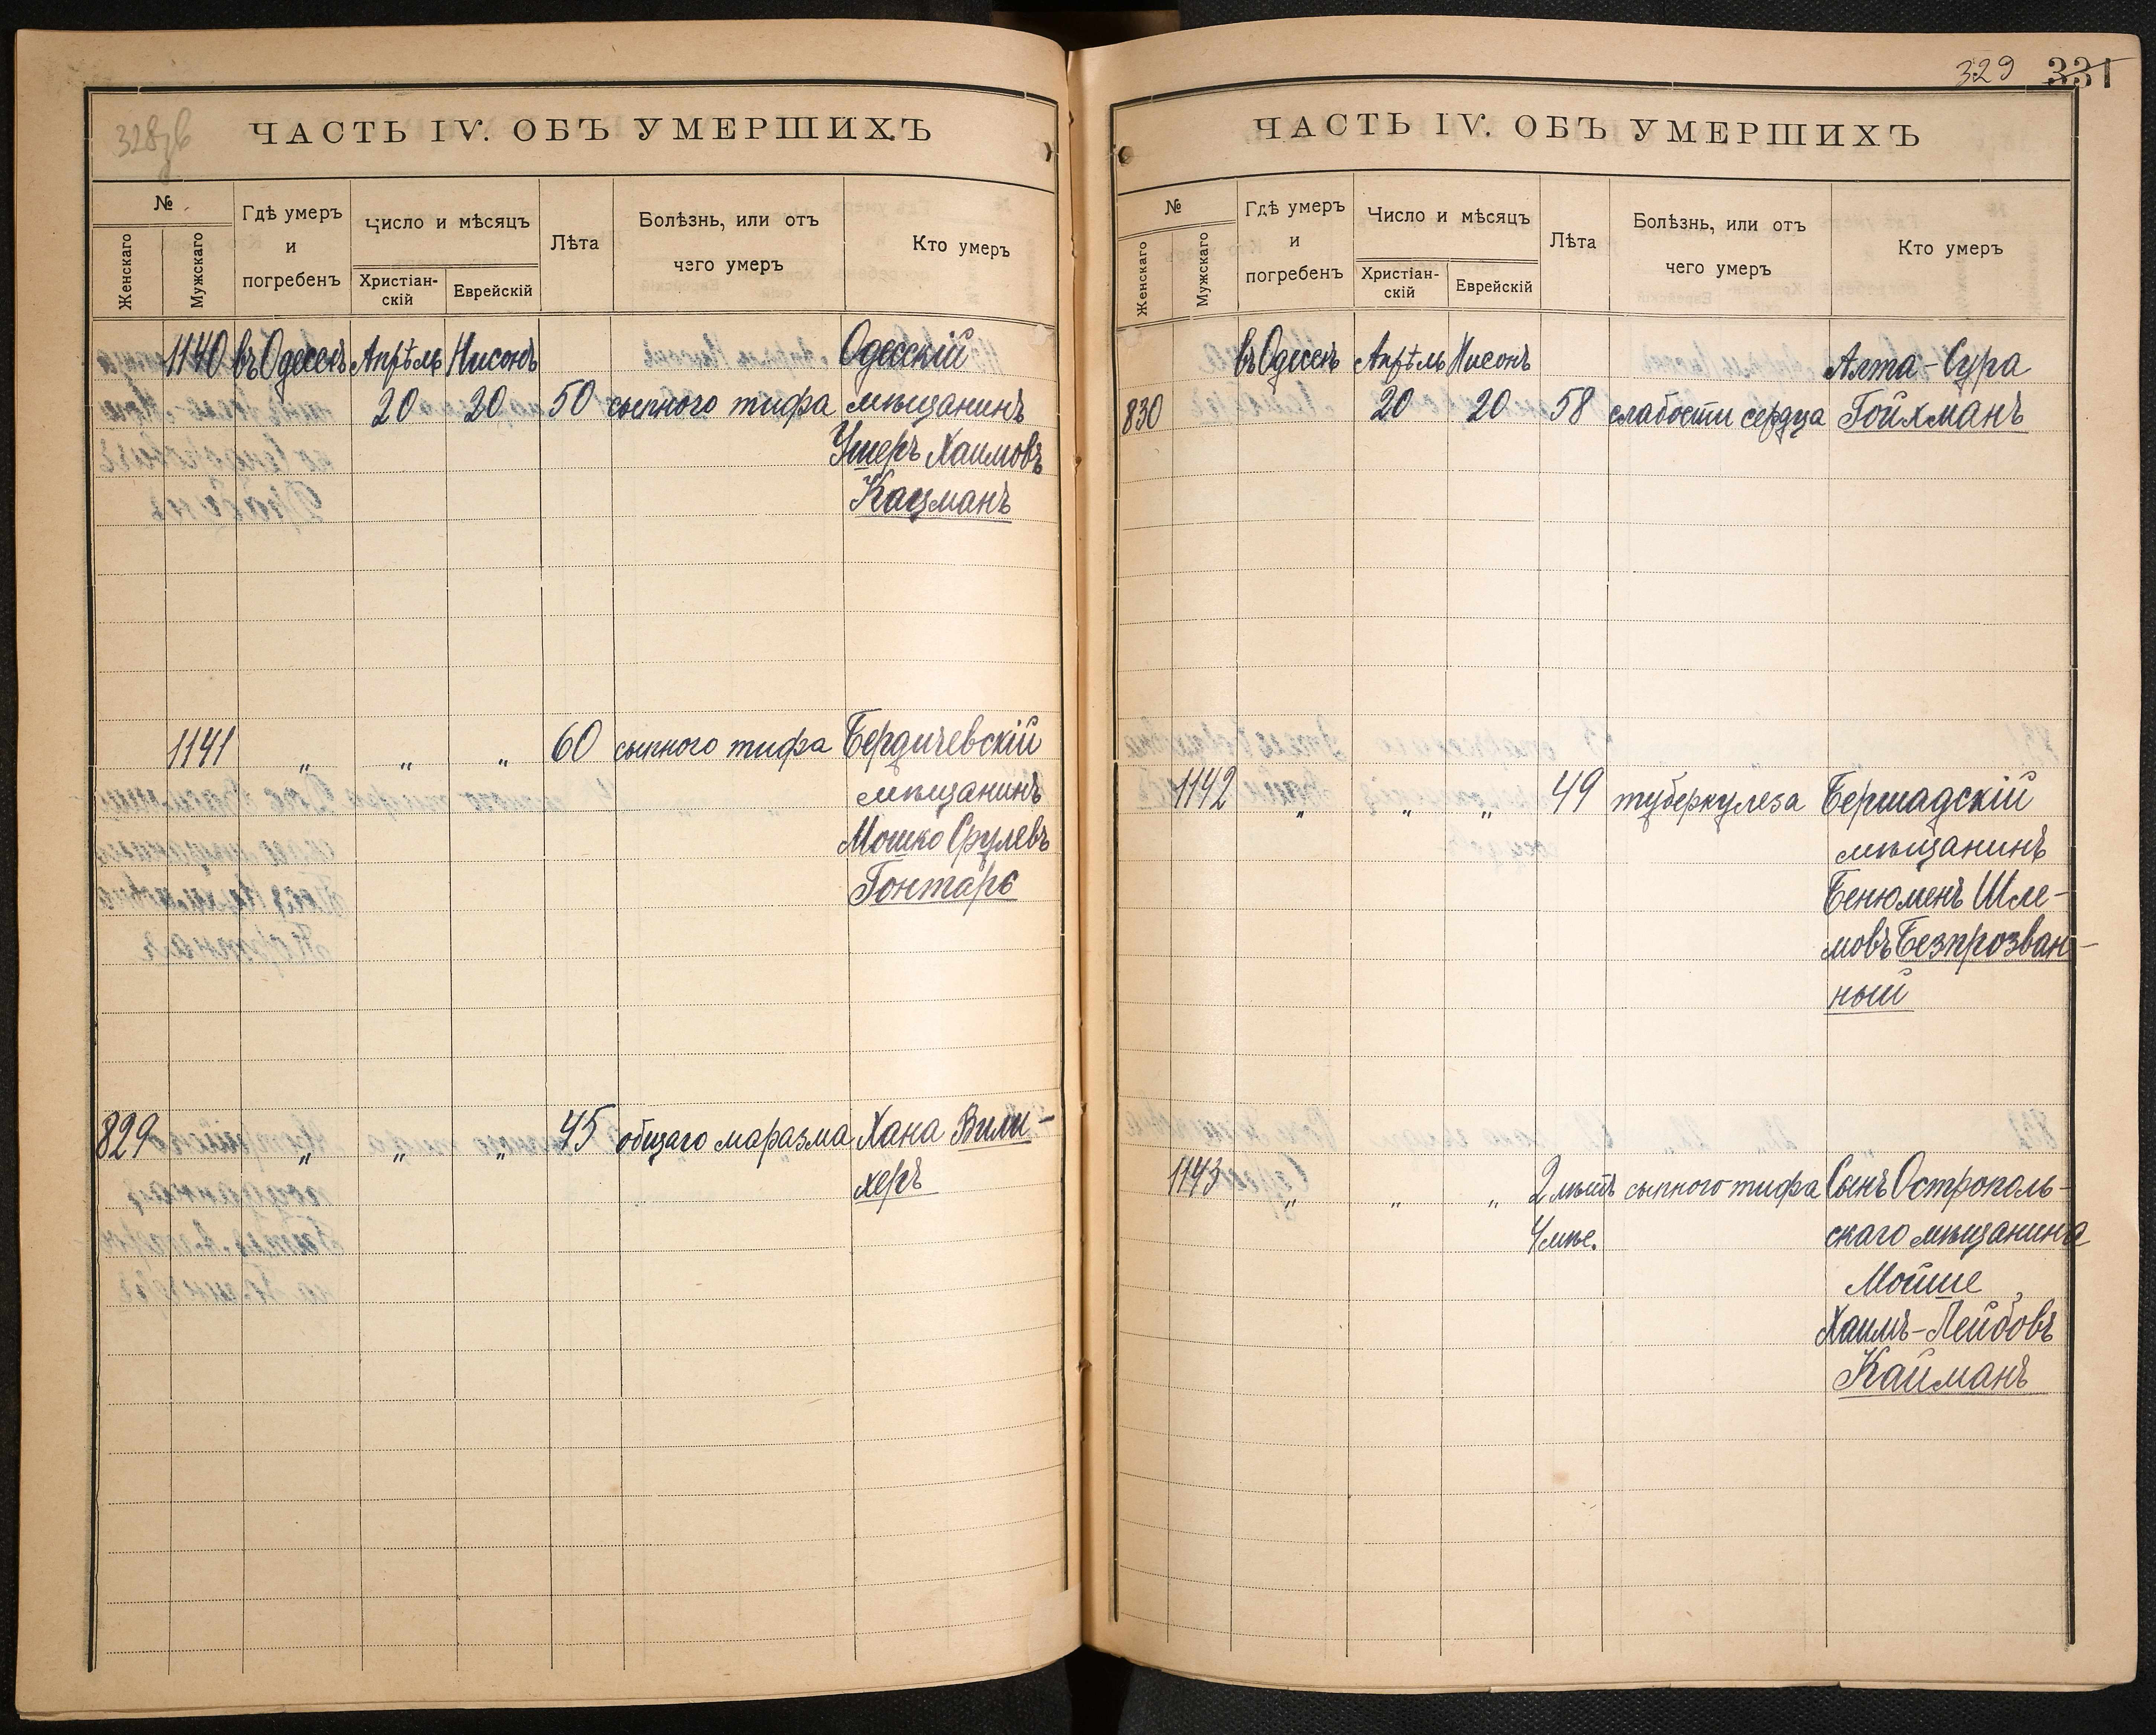 328зв
ЧАСТЬ IV. ОБЪ УМЕРШИХЪ
№
Женскаго
Мужскаго
Гдѣ умеръ
и
погребенъ
Число и мѣсяцъ
Христіан-
скій
Еврейскій
Лѣта
Болѣзнь, или отъ
чего умеръ
Кто умеръ
1140 въ Одессѣ Апрѣль Нисонъ Одесскій
20 20 50 сыпного тифа мѣщанинъ
Ушеръ Хаимовъ
Кацманъ
1141 „ „ „ 60 сыпного тифа Бердичевскій
мѣщанинъ
Мошко Срулевъ
Гонтарь
829 „ „ „ 45 общаго маразма Хана Вили-
херъ
329 331
ЧАСТЬ IV. ОБЪ УМЕРШИХЪ
№
Женскаго
Мужскаго
Гдѣ умеръ
и
погребенъ
Число и мѣсяцъ
Христіан-
скій
Еврейскій
Лѣта
Болѣзнь, или отъ
чего умеръ
Кто умеръ
въ Одессѣ Апрѣль Нисонъ Алта-Сура
830 20 20 58 слабости сердца Гойхманъ
1142 „ „ „ 49 туберкулеза Бершадскій
мѣщанинъ
Бенюменъ Шле-
мовъ Безпрозван-
ный
1143 „ „ „ 2 лѣтъ сыпного тифа Сынъ Острополь-
4 мѣс. скаго мѣщанина
Мойше
Хаимъ-Лейбовъ
Кайманъ